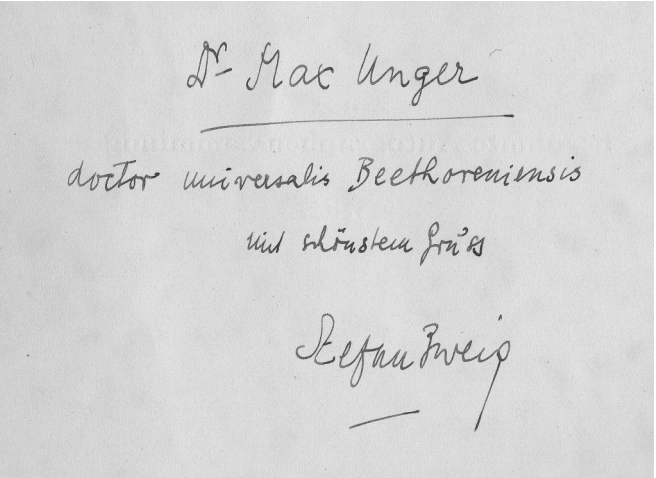 Dr Max Unger
doctor universalis Beethoveniensis
mit schönstem Gruss
Stefan Zweig